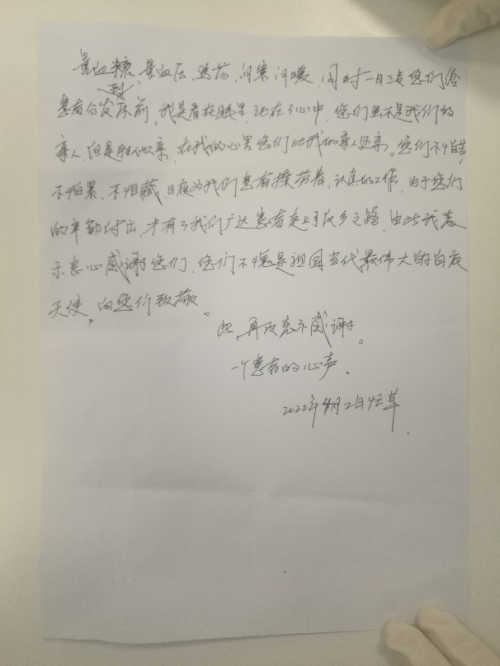 量血糖，量血压，送药，问寒问暖，同时一日三餐您们给
患者分发床前，我是看在眼里，记在了心中，您们虽不是我们的
亲人，但是胜似亲，在我的心里您们比我们亲人还亲。您们不怕苦，
不怕累，不怕脏，日夜为我们患者操劳着，认真的工作，由于您们
的辛勤付出，才有了我们广达患者走上了反乡之路，由此我表
示忠心感谢您们，您们不愧是祖国当代最伟大的白衣
天使，向您们致敬。
再次表示感谢。
一个患者的心声。
2022年4月2日